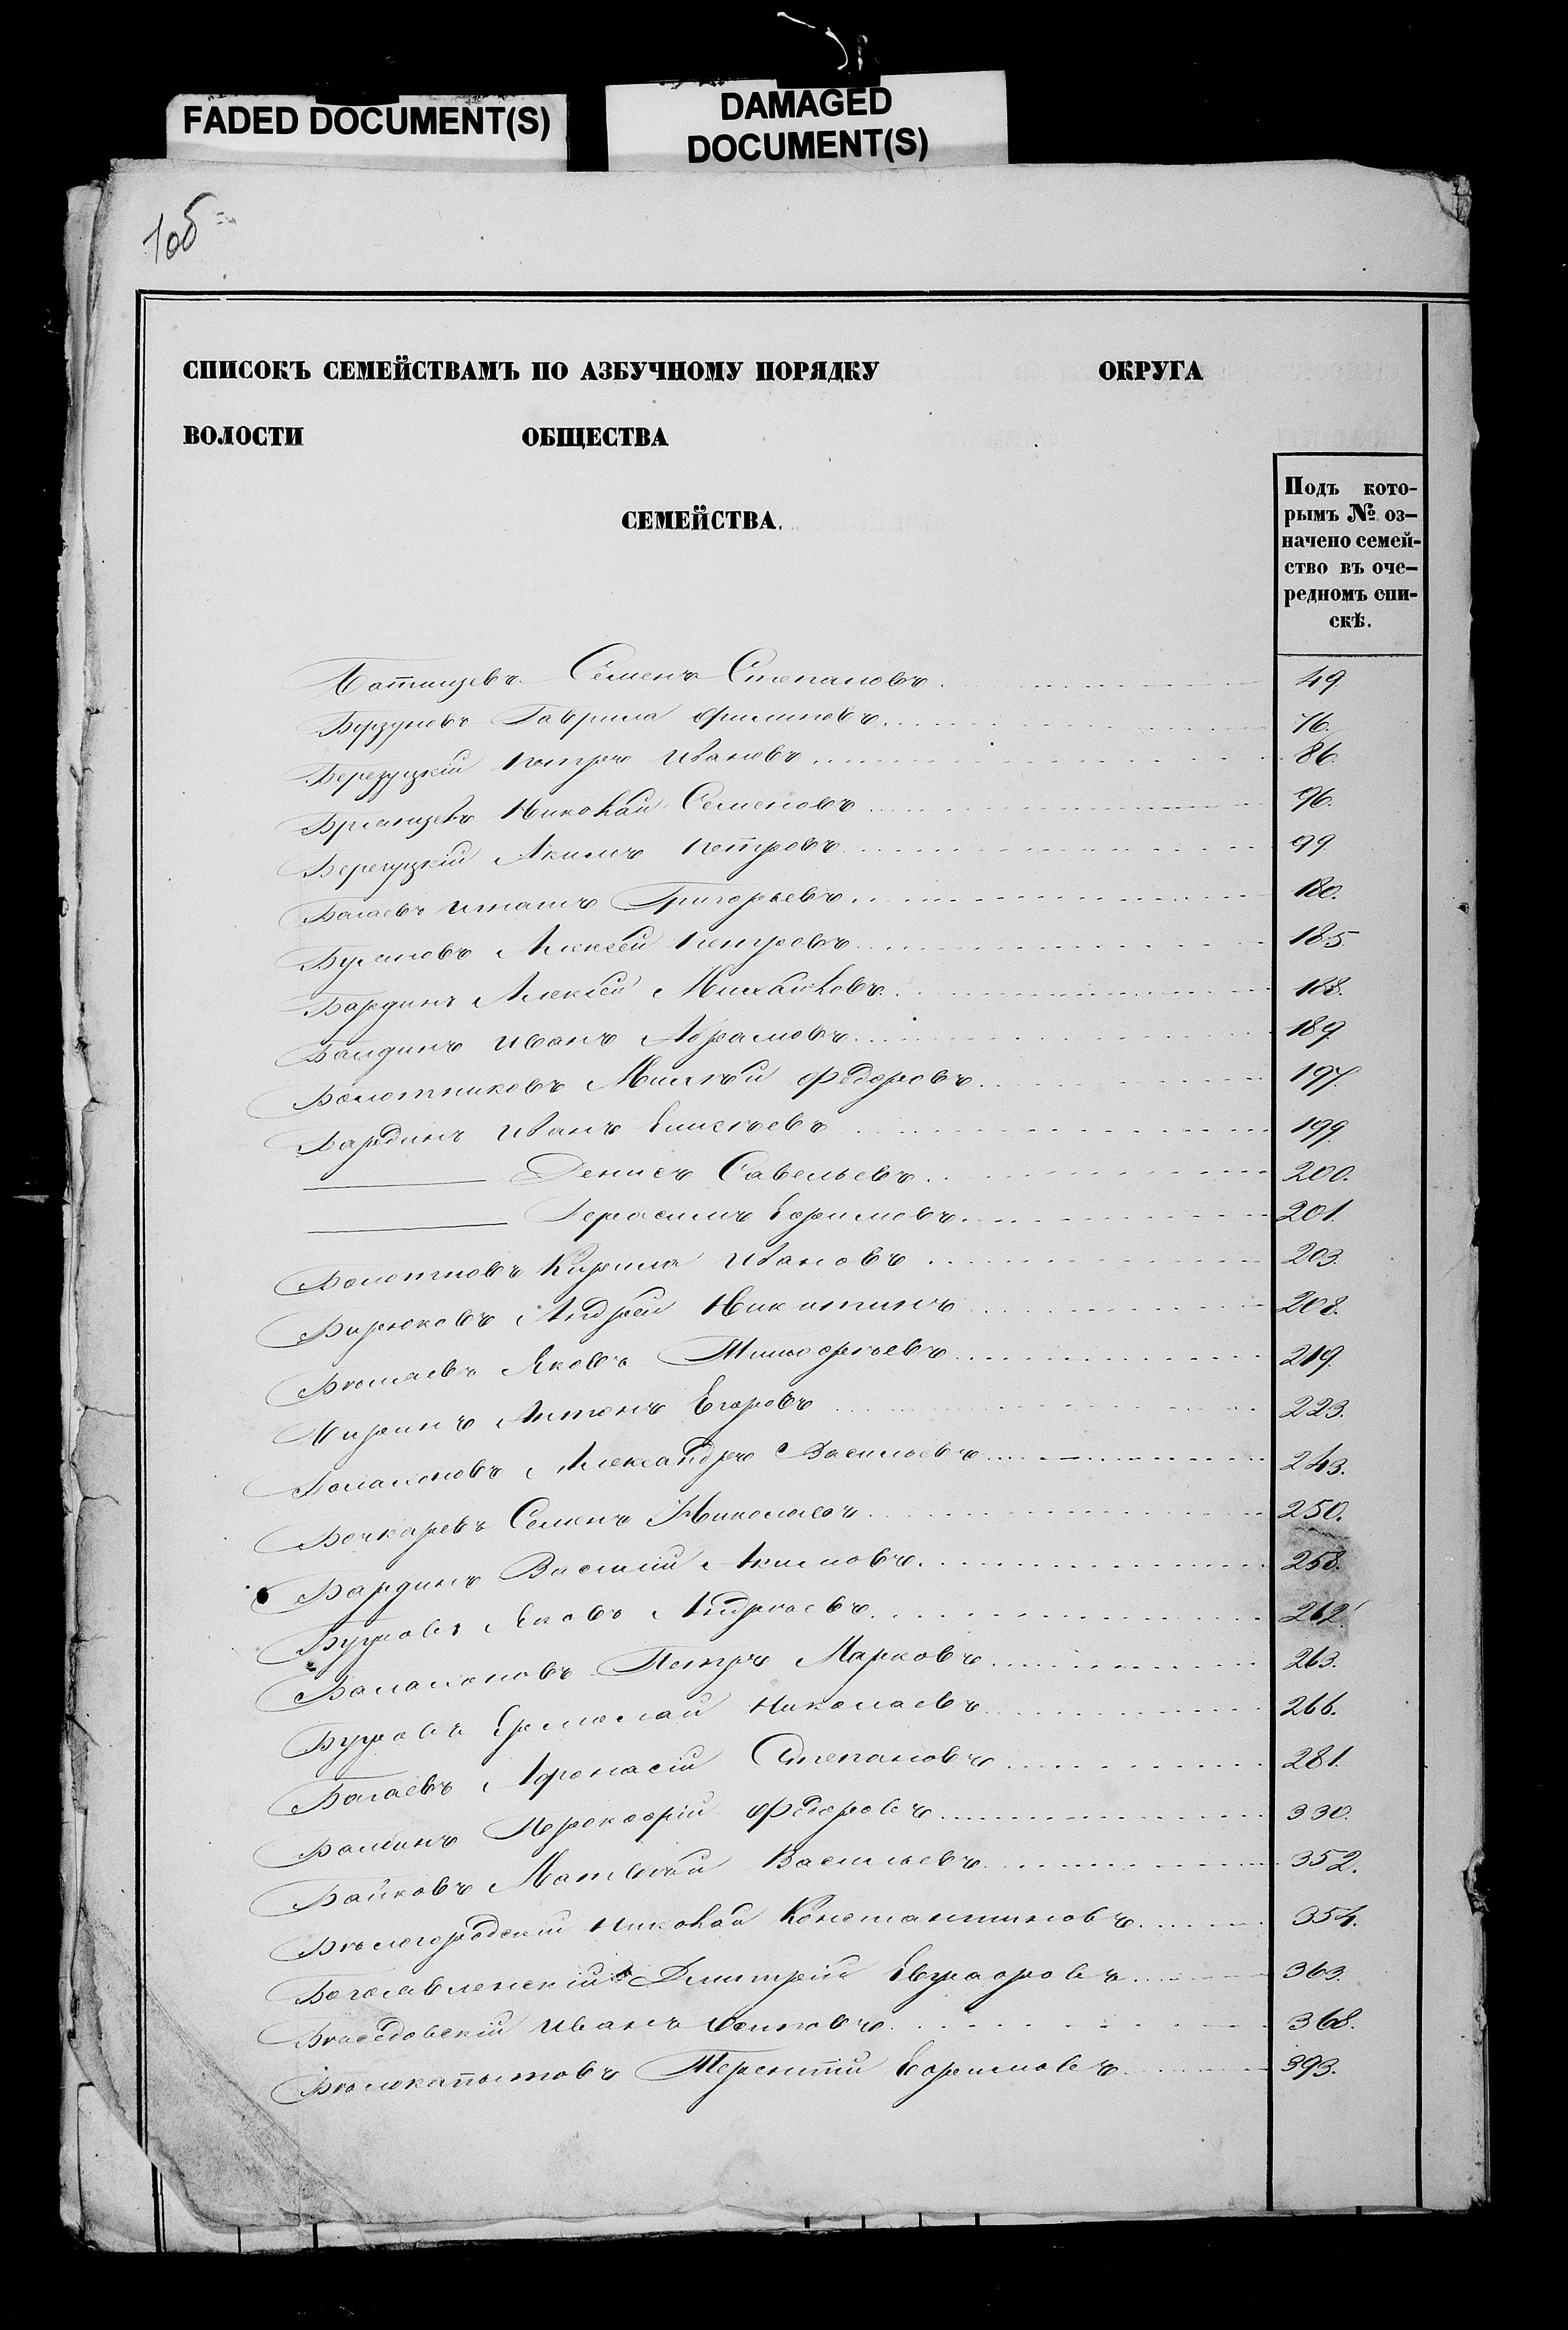 FADED DOCUMENT(S)
DAMAGED
DOCUMENT(S)
106
СПИСОКЪ СЕМЕЙСТВАМЪ ПО АЗБУЧНОМУ ПОРЯДКУ ОКРУГА
ВОЛОСТИ ОБЩЕСТВА
СЕМЕЙСТВА.
Подъ кото-
рымъ № оз-
начено семей-
ство въ оче-
редномъ спи-
скѣ.
Семенъ Степановъ 49
Гаврила Филиповъ 76.
Березуцкій Петръ Ивановъ 86.
Брянцевъ Николай Семеновъ 96.
Березуцкій Акимъ Петровъ 99
Балаевъ Игнатъ Григорьевъ 180.
Булановъ Алексѣй Петровъ 185
Бардинъ Алексѣй Михайловъ 188.
Балдинъ Иванъ Абрамовъ 189
Болотниковъ Михѣй Федоровъ 197.
Бардинъ Иванъ Елисѣевъ 199
Денисъ Савельевъ 200.
Герасимъ Ефимовъ 201.
Болотновъ Кирила Ивановъ 203.
Бирюковъ Андрей Никитинъ 208.
Бѣляевъ Яковъ Тимофѣевъ 219.
Антонъ Егоровъ 223.
Балалоновъ Александръ Васильевъ 243.
Бочкаревъ Семенъ Николаевъ 250.
Бардинъ Василій Акимовъ 258.
Буровъ Яковъ Андрѣевъ 262.
Балалоновъ Петръ Марковъ 263.
Буровъ Ермолай Николаевъ 266.
Балаевъ Афонасій Степановъ 281.
Балбинъ Прокофій Федоровъ 330.
Байковъ Матвѣй Васильевъ 352.
Бѣлогородскій Николай Константиновъ 354.
Богоявленскій Дмитрій Евграфовъ 363.
Бѣлѣдовскій Иванъ Осиповъ 368.
Бѣлокопытовъ Терентій Ефимовъ 393.